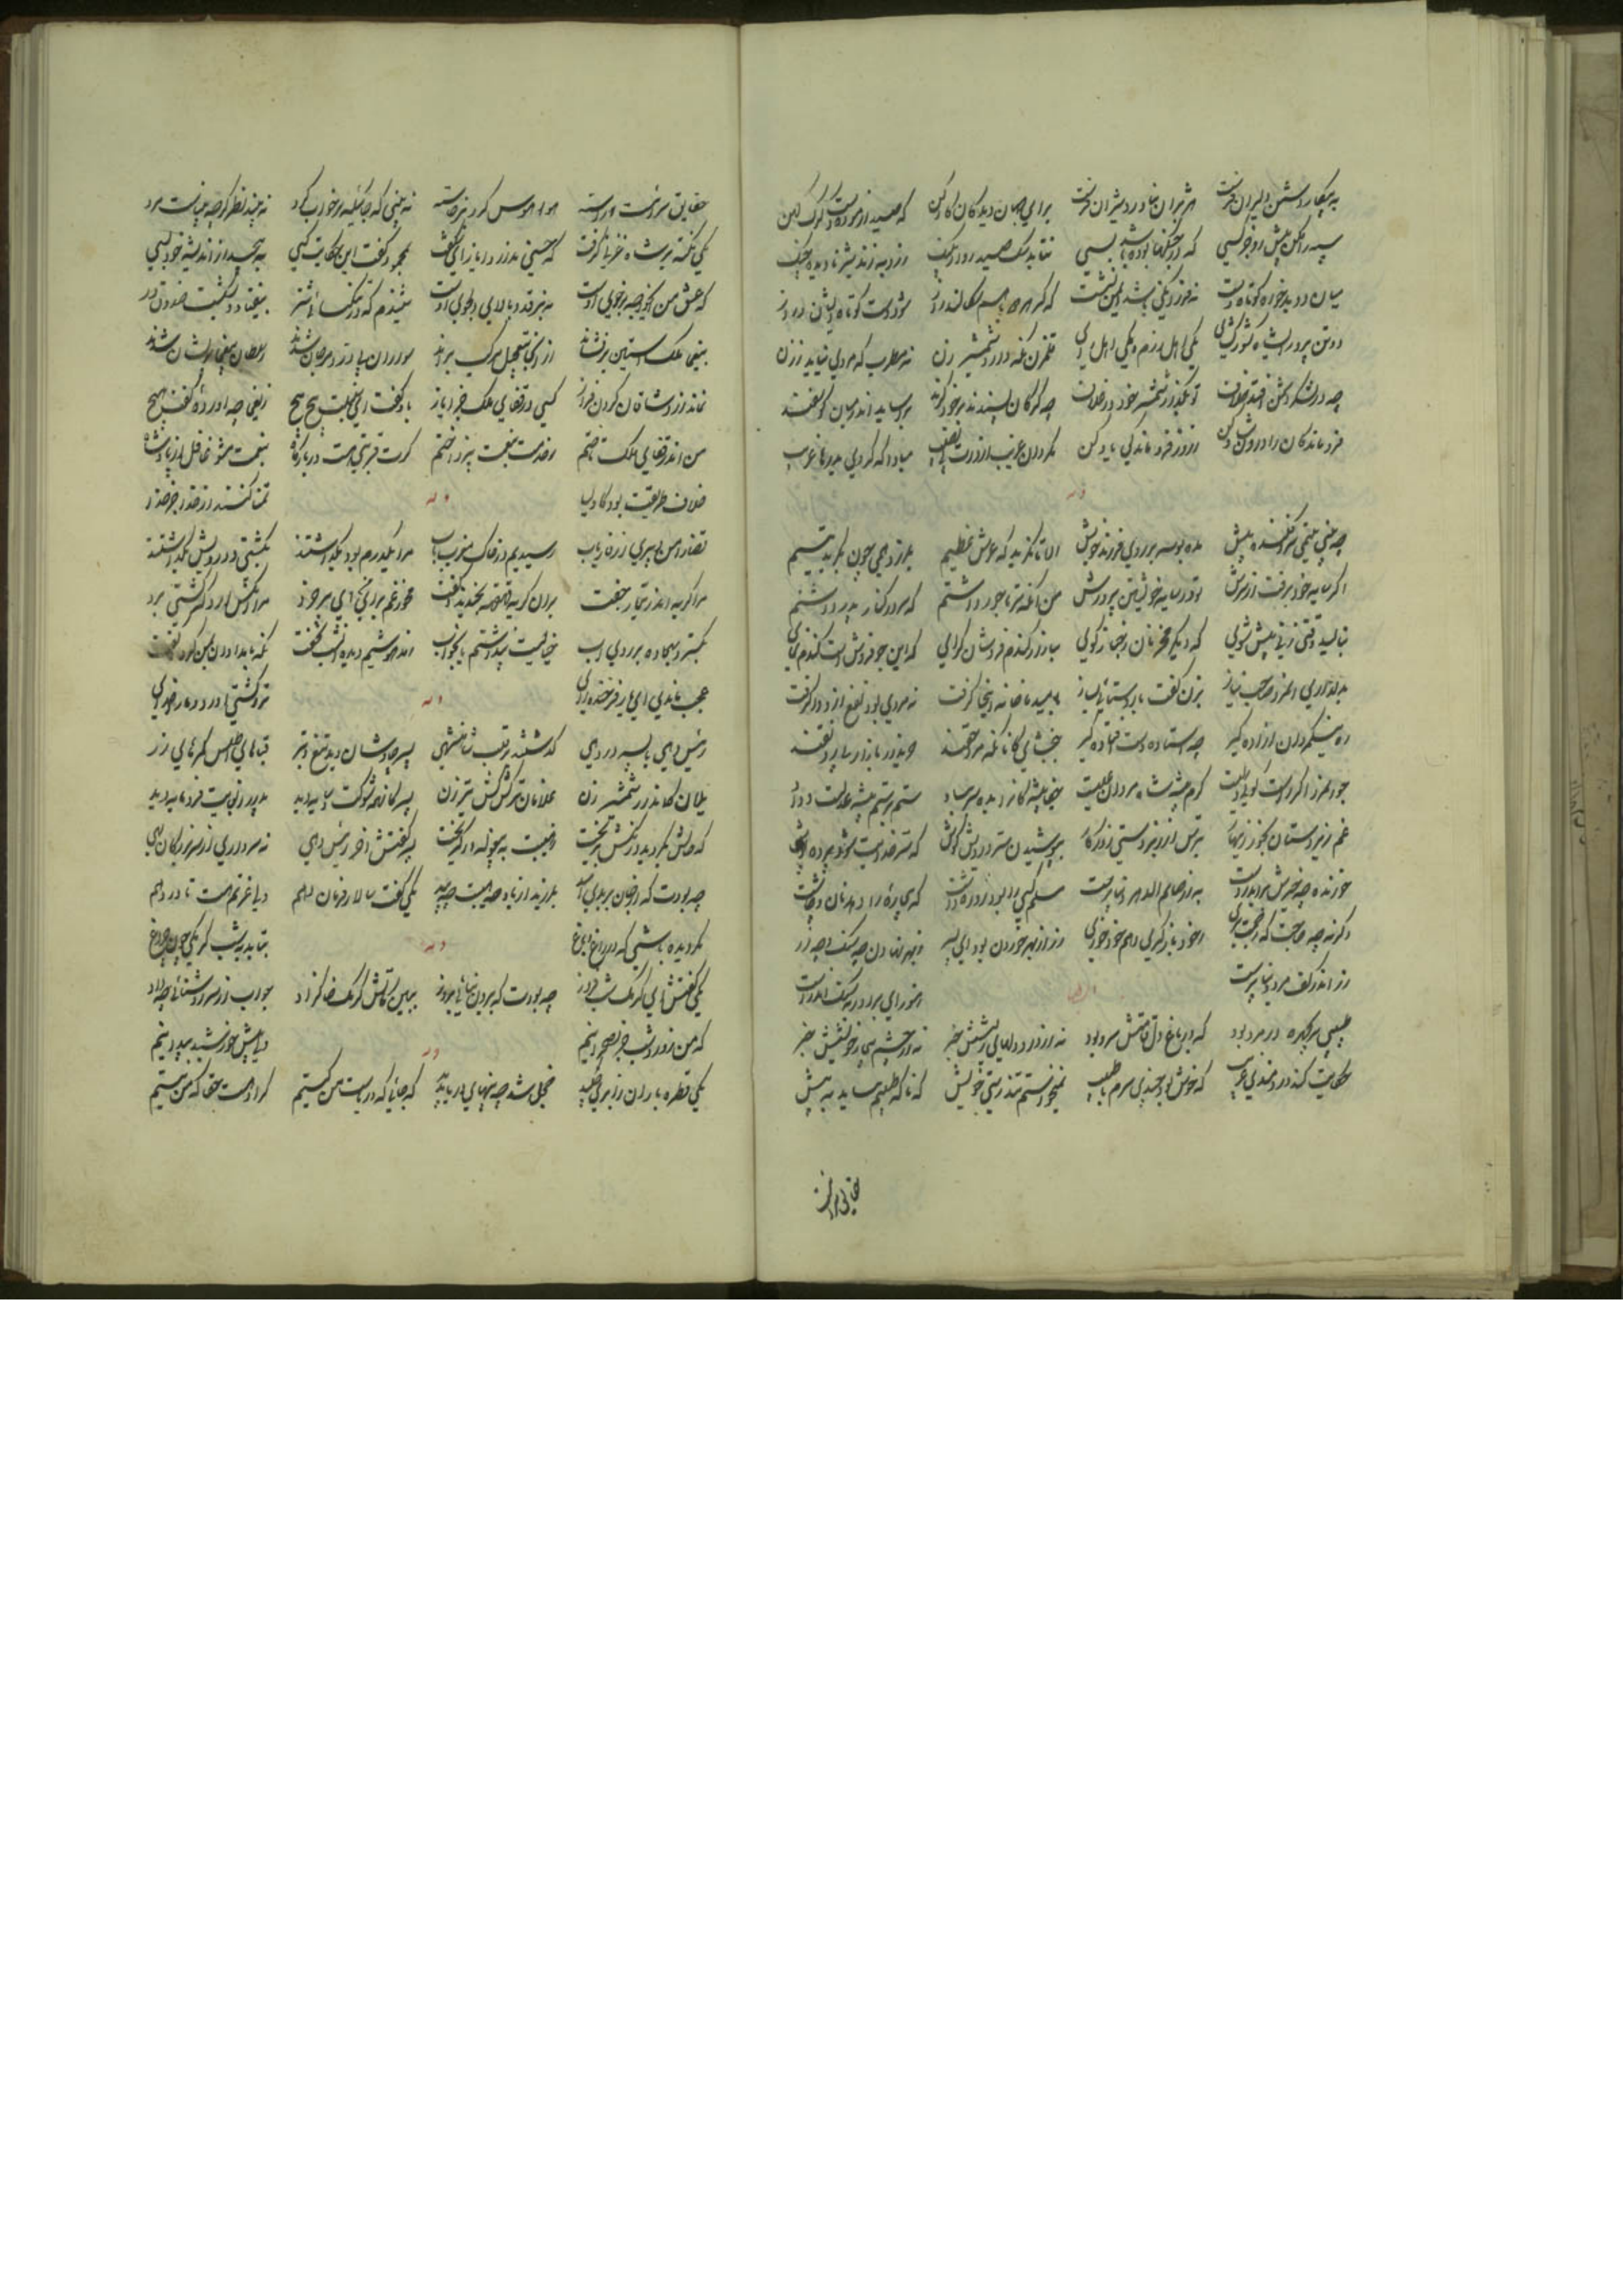 به پیکار دشمن دلیران فرست هژبران بناورد شیران فرست برای جهان دیدگان کار کن که صید آزمودست گرگ کهن
سپه را مکن پیش رو جز کسی که در جنگها بوده باشد بسی نتابد سگ صید روی از پلنگ ز روبه رمد شیر نادیده جنگ
میان دو بدخواه کوتاه دست نه فرزانگی باشد ایمن نشست که گر هر دو با هم سگالند راز شود دست کوتاه ایشان دراز
دو تن پرور ای شاه کشور گشای یکی اهل رزم و یکی اهل رای قلمزن نگه دار و شمشیر زن نه مطرب که مردی نیاید ز زن
چو در لشکر دشمن افتد خلاف تو بگذار شمشیر خود در غلاف چو گرگان پسندند بر خود گزند بر آساید اندر میان گوسفند
فرو ماندگان را درون شاد کن ز روز فرو ماندگی یاد کن مگردان غریب از درت بی نصیب مبادا که گردی بدرها غریب
وله
چو بینی یتیمی سر افکنده پیش مده بوسه بر روی فرزند خویش الا تا نگرید که عرش عظیم بلرزد همی چون بگرید یتیم
اگر سایه خود برفت از سرش تو در سایه خویشتن پرورش من آنگه سر تاجور داشتم که سر در کنار پدر داشتم
بنالید وقتی زنی پیش شوی که دیگر مخر نان ز خباز کوی ببازار گندم فروشان گرای که این جو فروش است گندم نمای
بدلداری آن مرد صاحب نیاز بزن گفت کای روشنائی بساز بامید ما خانه اینجا گرفت نه مردی بود نفع ازو وا گرفت
ره نیکمردان آزاده گیر چو استاده دست افتاده گیر ببخشای کانانکه مرد حقند خریدار بازار بی رونقند
جوانمرد اگر راست گوئی ولیست کرم پیشه شاه مردان علیست جفا پیشگانرا بده سر بباد ستم بر ستم پیشه عدلست و داد
غم زیردستان بخور زینهار بترس از زبردستی روزگار بپوشیدن ستر درویش کوش که ستر خدایت شود پرده پوش
خورنده چه خیرش برآید ز دست به از صایم الدهر دنیا پرست مسلم کسی را بود روزه داشت که بیچاره را دهد نان چاشت
وگرنه چه حاجت که زحمت بری ز خود باز گیری و هم خود خوری زر از بهر خوردن بود ای پسر ز بهر نهادن چه سنگ و چه زر
زر اندر کف مرد دنیا پرست هنوز ای برادر به سنگ اندرست
ایضا
طبیبی پریچهره در مرو بود که در باغ دل قامتش سرو بود نه از درد دلهای ریشش خبر نه از چشم بیمار خویشش خبر
حکایت کند دردمندی غریب که خوش بود چندی سرم با طبیب نمیخواستم تندرستی خویش که ناگه طبیبم نیاید به پیش
حقایق سرائیست
حقایق سرائیست آراسته هوا و هوس گرد برخاسته نه بینی که جائیکه برخاست گرد نه بیند نظر گرچه بیناست مرد
یکی نکته بر شاه غزنین گرفت که حسنی ندارد ایاز ای شگفت بمحمود گفت این حکایت کسی به پیچید از اندیشه خود بسی
که عشق من ایخواجه بر خوی اوست نه بر قد و بالای دلجوی اوست شنیدم که در تنگنائی شتر بیفتاد و بشکست صندوق در
بیغما ملک آستین برفشاند وز آنجا بتعجیل مرکب براند سواران پی در و مرجان شدند ز سلطان بیغما پریشان شدند
نماند از وشاقان گردن فراز کسی در قفای ملک جز ایاز بدو گفت ای سنبلت پیچ پیچ ز یغما چه آورده گفت هیچ
من اندر قفای ملک تاختم ز خدمت بنعمت نپرداختم گرت قربتی هست در بارگاه بنعمت مشو غافل از پادشاه
خلاف طریقت بود کاولیا تمنا کنند از خدا جز خدا
وله
قضا را من و پیری از فاریاب رسیدیم در خاک مغرب بآب مرا یکدرم بود برداشتند بکشتی و درویش بگذاشتند
مرا گریه آمد ز تیمار جفت بر آن گریه قهقه بخندید و گفت مخور غم برای من ای پر خرد مرا آنکس آرد که کشتی برد
بگسترد سجاده بر روی آب خیالست پنداشتم یا بخواب ز مدهوشیم دیده آنشب نخفت نگه بامدادان بمن کرد و گفت
عجب ماندی ای یار فرخنده رای ترا کشتی آورد و ما را خدای
وله
رئیس دهی با پسر در رهی گذشتند بر قلب شاهنشهی پسر چاوشان دید و تیغ و تبر قباهای اطلس کمرهای زر
یلان کماندار شمشیر زن غلامان ترکش کش تیر زن پسر کانهمه شوکت و پایه دید پدر را بغایت فرومایه دید
که حالش بگردید و رنگش بریخت ز هیبت به پیغوله در گریخت پسر گفتش آخر رئیس دهی نه سرداری از سر بزرگان مهی
چه بودت که از جان بریدی امید بلرزیدی از باد هیبت چو بید یکی گفت سالار و فرمان دهم ولی عزتم هست تا در دهم
نگردیده باشی که در باغ و راغ بتابد بشب کرمکی چون چراغ
وله
یکی گفتش ای کرمک شب فروز چه بودت که بیرون نیائی بروز ببین کاتشین کرمک خاکزاد جواب از سر روشنائی چه داد
که من روز و شب جز بصحرا نیم ولی پیش خورشید پیدا نیم
وله
یکی قطره باران ز ابری چکید خجل شد چو پهنای دریا بدید که جائیکه دریاست من کیستم گر او هست حقا که من نیستم